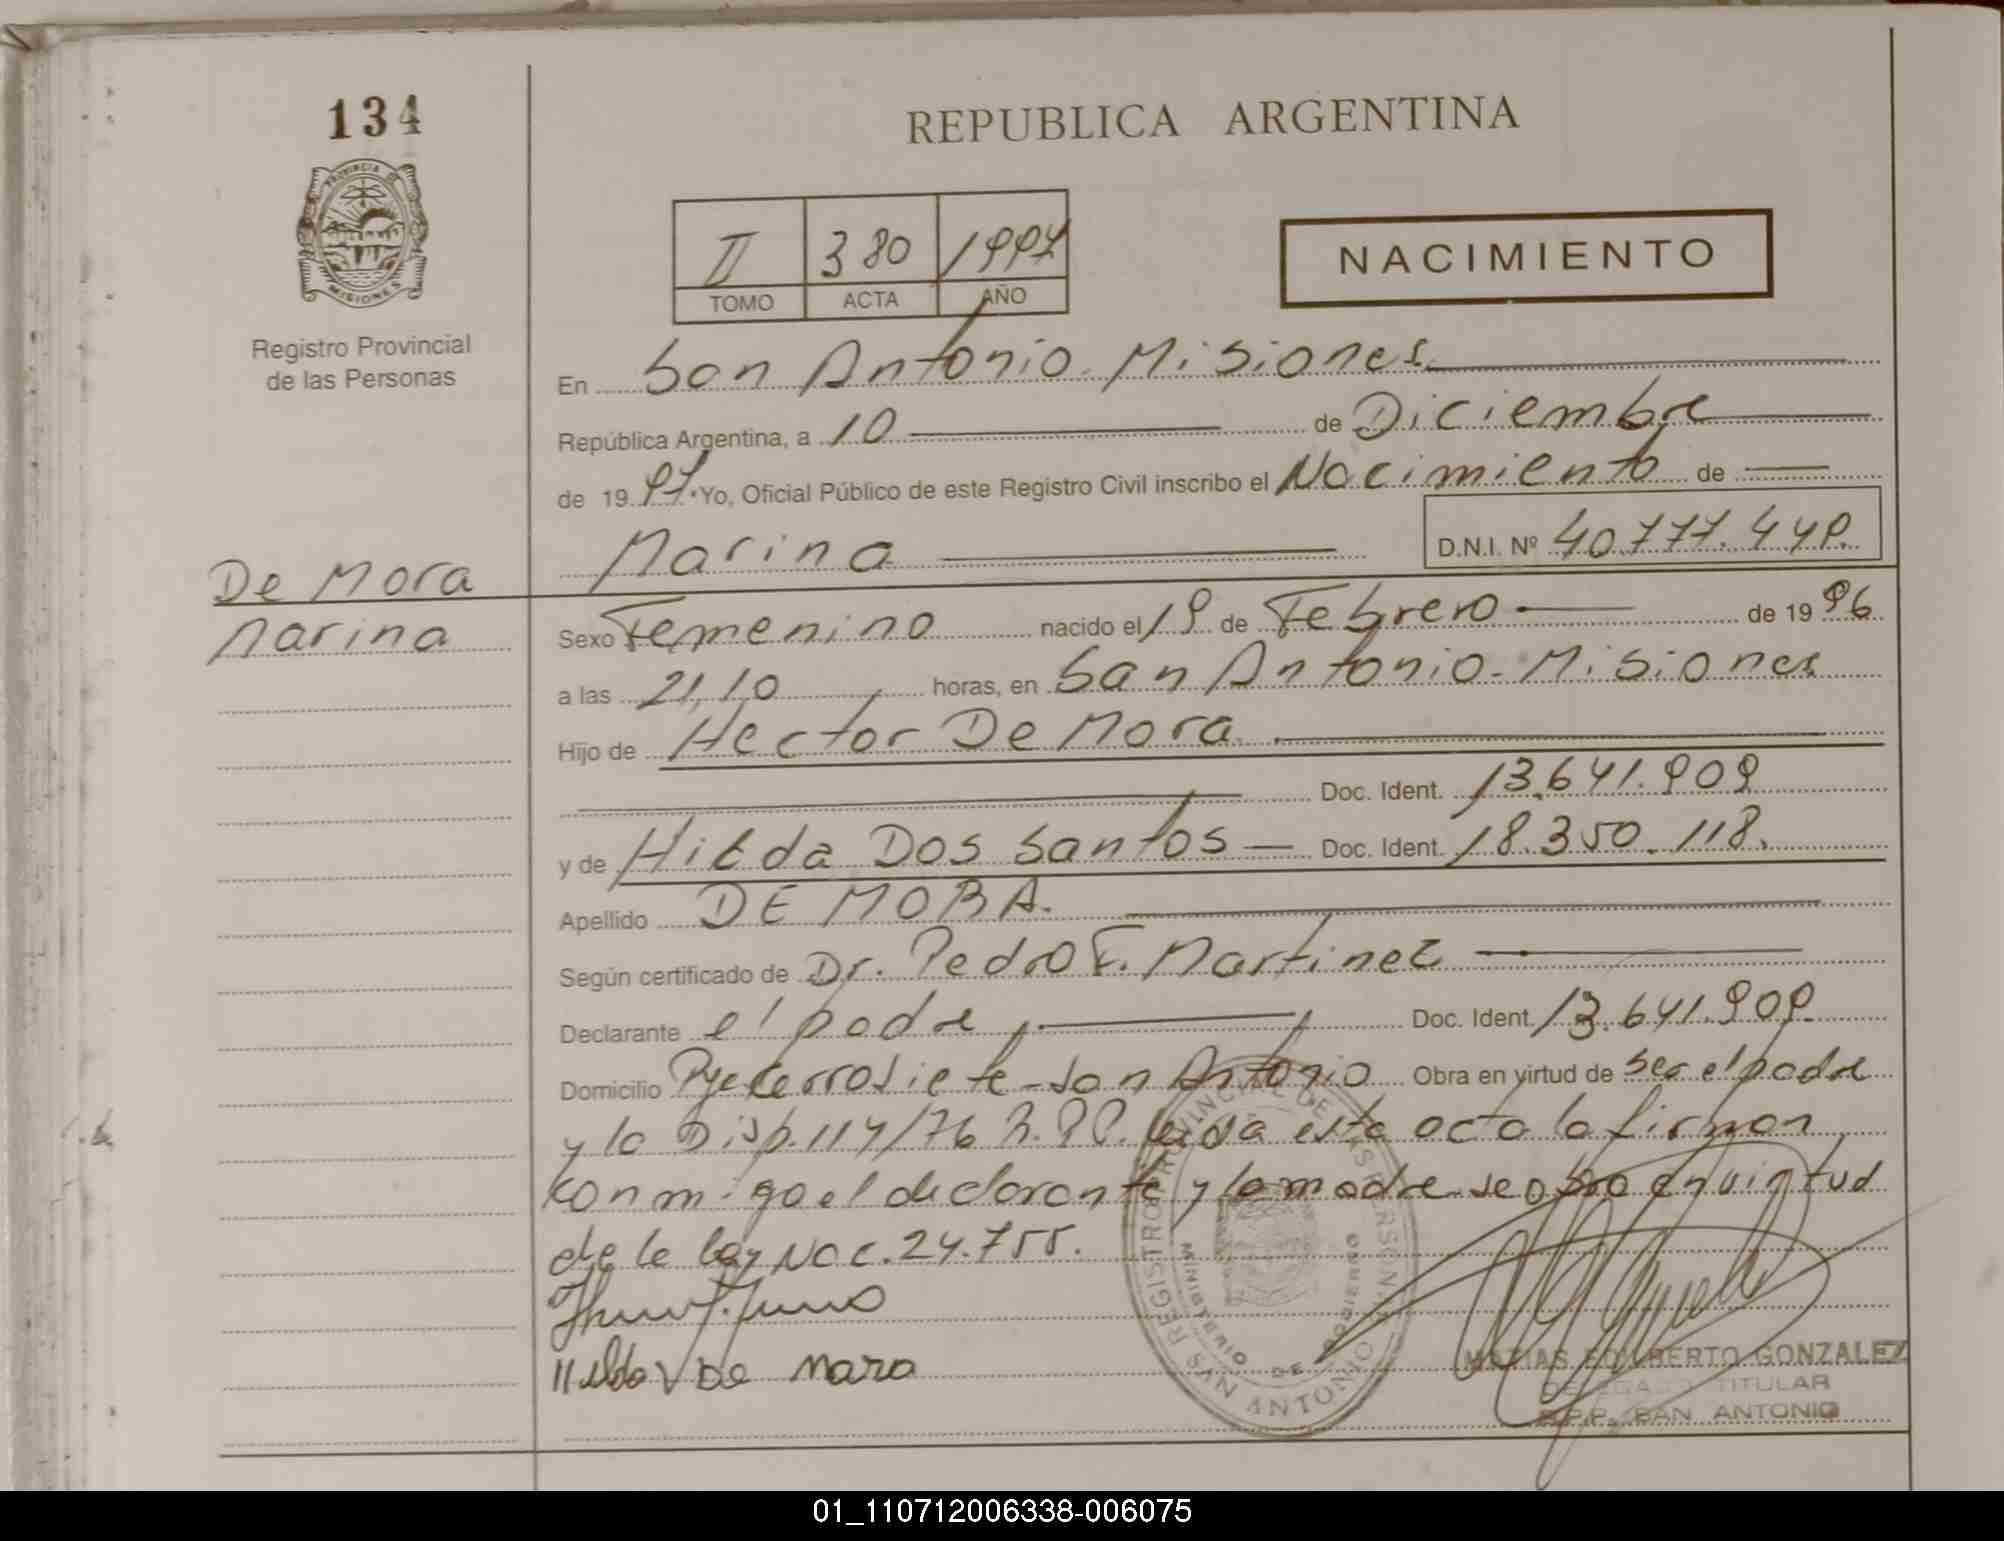 134
REPUBLICA ARGENTINA
PROVINCIA DE MISIONES
II 380 1997
TOMO ACTA AÑO
NACIMIENTO
Registro Provincial
de las Personas
En San Antonio. Misiones
República Argentina, a 10 de Diciembre
de 1997. Yo, Oficial Público de este Registro Civil inscribo el Nacimiento de
Marina D.N.I. Nº 40.777.449.
De Mora
Marina
Sexo Femenino nacido el 19 de Febrero de 1996.
a las 21,10 horas, en San Antonio. Misiones
Hijo de Hector De Mora
Doc. Ident. 13.641.909
y de Hilda Dos Santos Doc. Ident. 18.350.118.
Apellido DE MORA.
Según certificado de Dr. Pedro F. Martinez
Declarante el padre, Doc. Ident. 13.641.909.
Domicilio San Antonio Obra en virtud de ser el padre
y la Disp. 114/76 R.P.P. leida esta acta la firman
conmigo el declarante y la madre se obra en virtud
de le ley Nac. 24.755.
Hilda De Mora
REGISTRO PROVINCIAL DE LAS PERSONAS
MINISTERIO DE GOBIERNO
SAN ANTONIO
MATIAS EDILBERTO GONZALEZ
DELEGADO TITULAR
R.P.P. SAN ANTONIO
01_110712006338-006075